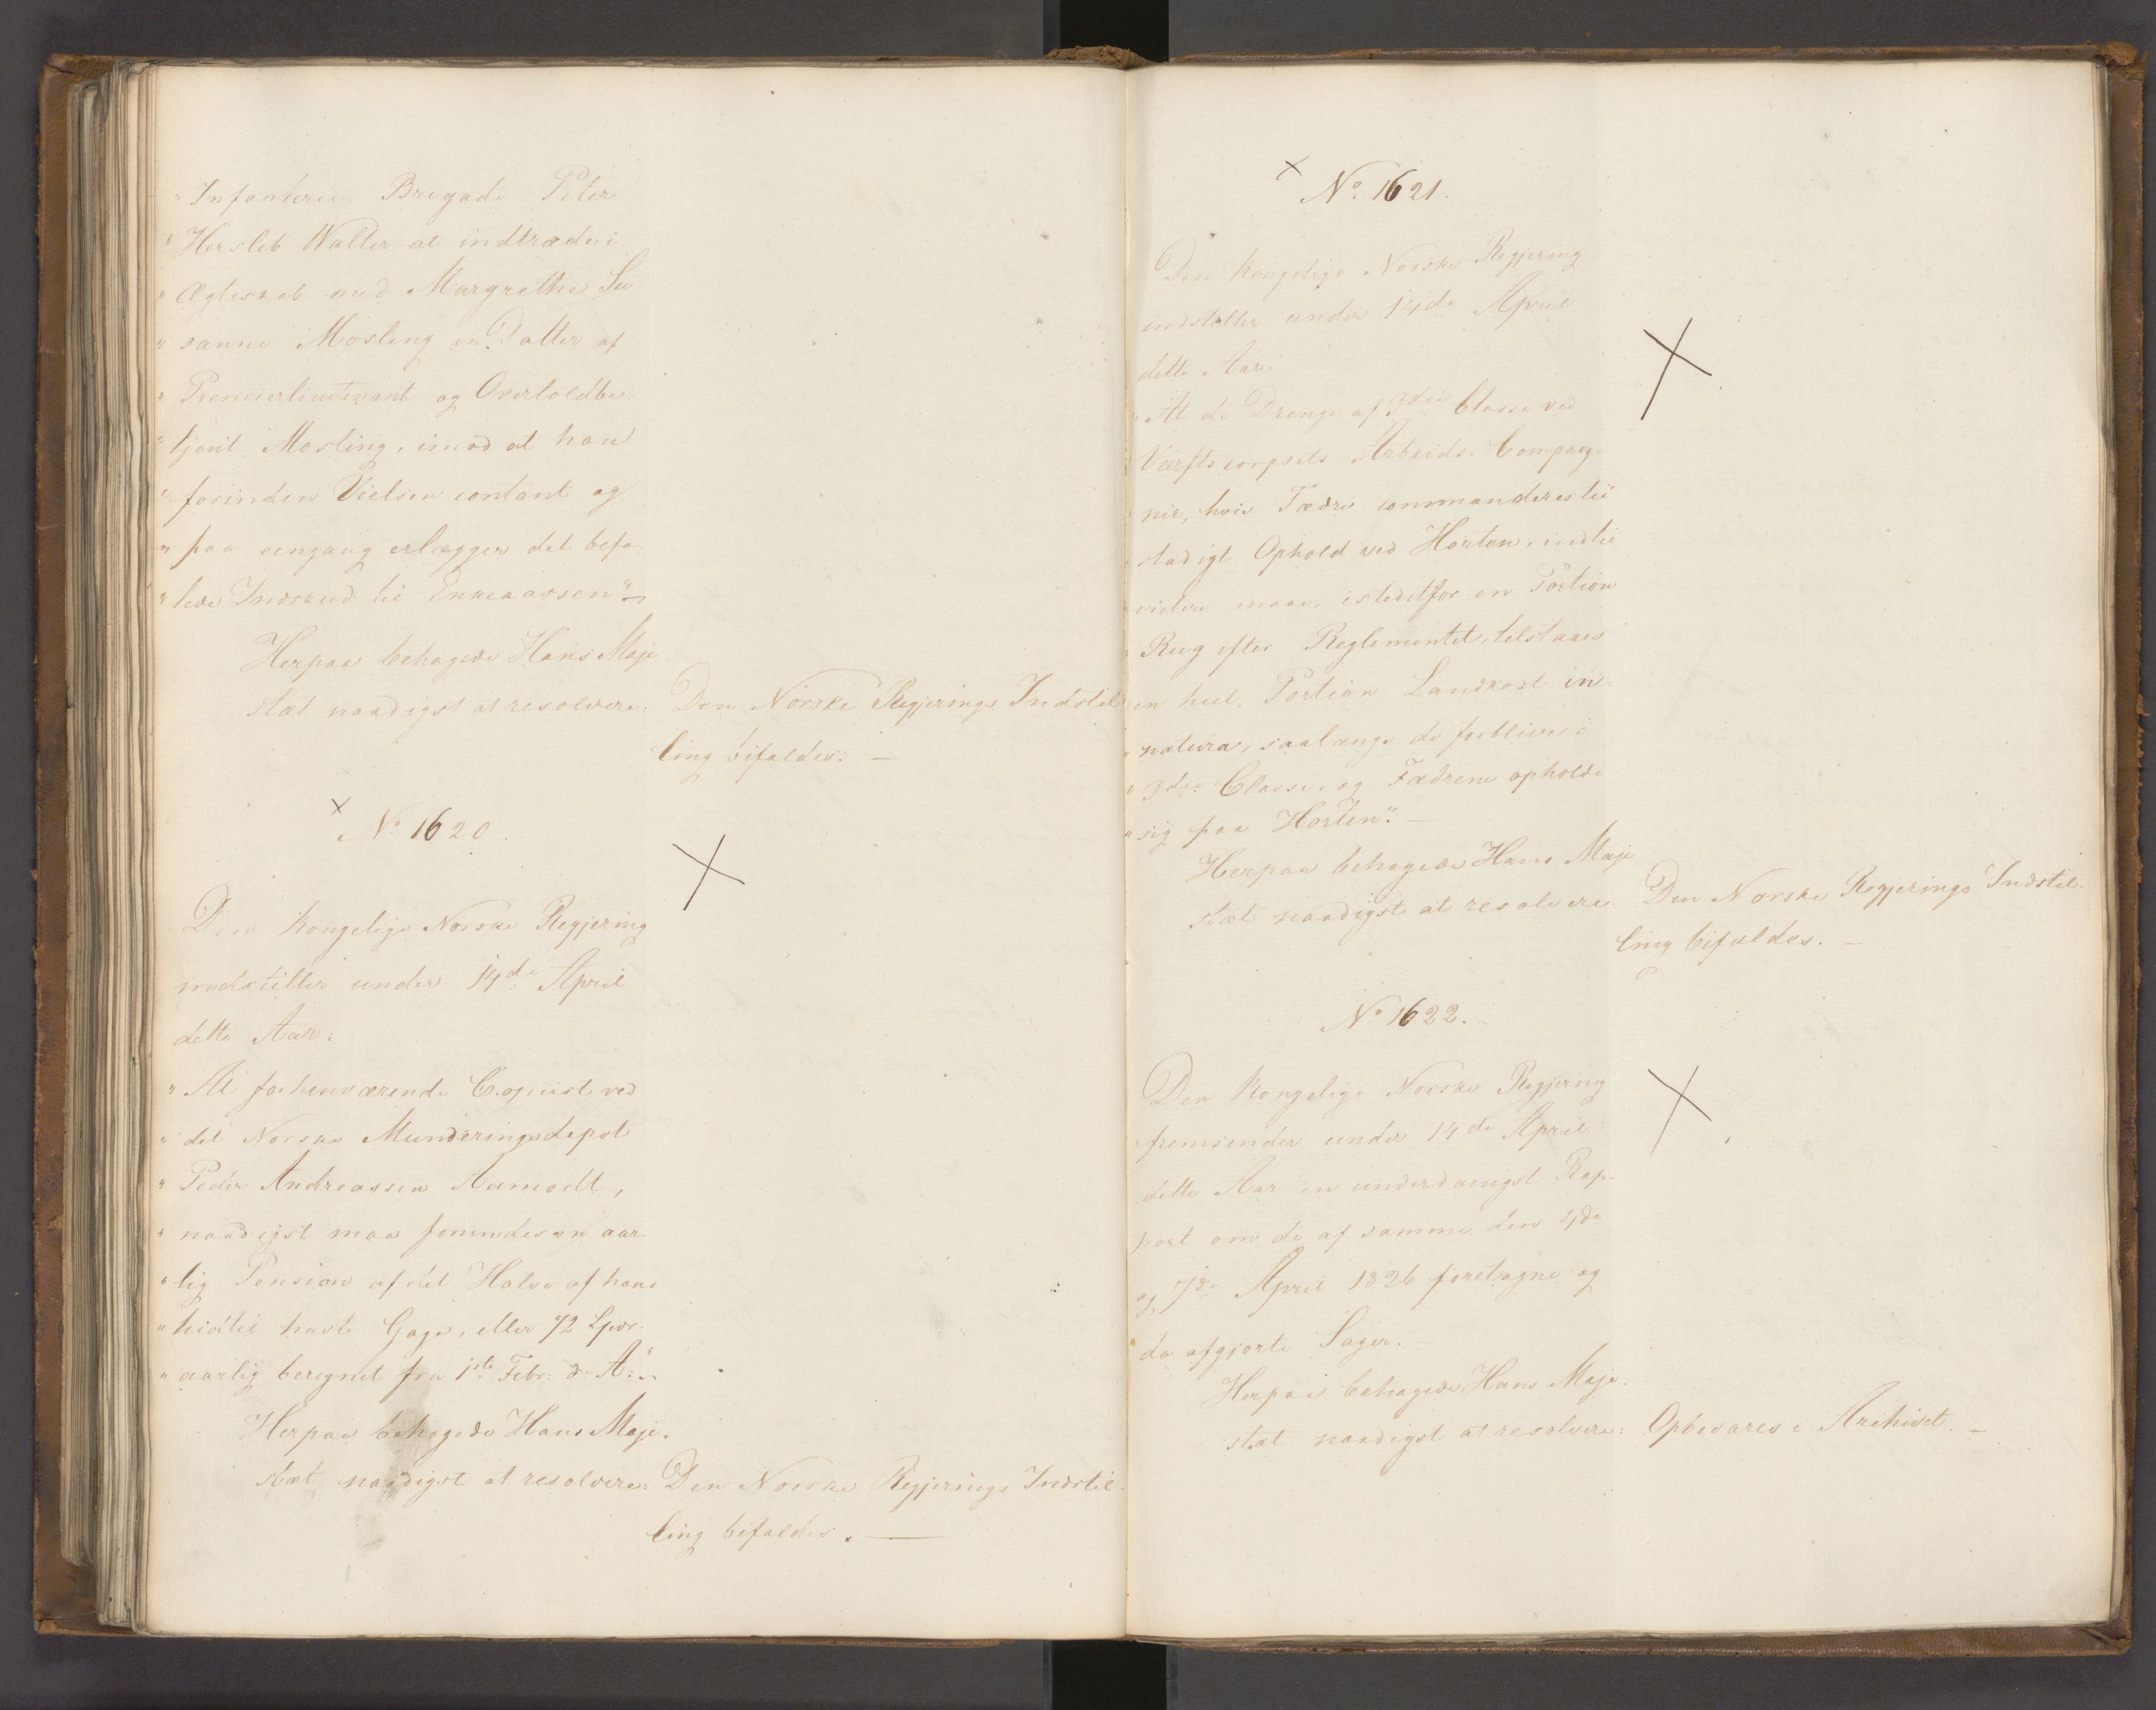 " Infanterie Brigade Peter
" Hersleb Walter at indtræde i
" Ægteskab med Margrethe Su
" sanne Mosling en Datter af
" Premierlieutenant og Overtoldbe-
" tjent Mosling, imod at han
" forinden Vielsen contant og
" paa eengang erlægger det befa-
" lede Indskud til Enkecassen" —
Herpaa behagede Hans Maje
stæt naadigst at resolvere: Den Norske Regjerings Indstil
ling bifaldes. —
x No 1620.
Den Kongelige Norske Regjering
indstiller under 14de April
dette Aar:
" At forhenværende Copiist ved
" det Norske Munderingsdepot
" Peder Andreassen Aamodt,
" naadigst maa forundes en aar-
" lig Pension af det Halve af hans
" hidtil havte Gage, eller 72 Spdr.
" aarlig beregnet fra 1ste Febr: d. A:"
Herpaa behagede Hans Maje-
stæt naadigst at resolvere: Den Norske Regjerings Indstil-
ling bifaldes. —
x No 1621.
Den Kongelige Norske Regjering
indstiller under 14de April
dette Aar:
" At de Drenge af 3die Classe ved
" Værftscorpsets Arbeids-Compag-
" nie, hvis Fædre commanderes til
" stadigt Ophold ved Horten, indtil
" videre maae, istedetfor en Portion
" Rug efter Reglementet, tilstaaes
" en heel Portion Landkost in
" natura, saalænge de forblive i
" 3die Classe, og Fædrene opholde
" sig paa Horten". —
Herpaa behagede Hans Maje
stæt naadigst at resolvere: Den Norske Regjerings Indstil-
ling bifaldes. —
No 1622. -
Den Kongelige Norske Regjering
fremsender under 14de April
dette Aar en underdanigst Rap-
port om de af samme den 4de
og 7de April 1826 foretagne og
da afgjorte Sager. —
Herpaa behagede Hans Maje-
stæt naadigst at resolvere: Opbevares i Archivet. —